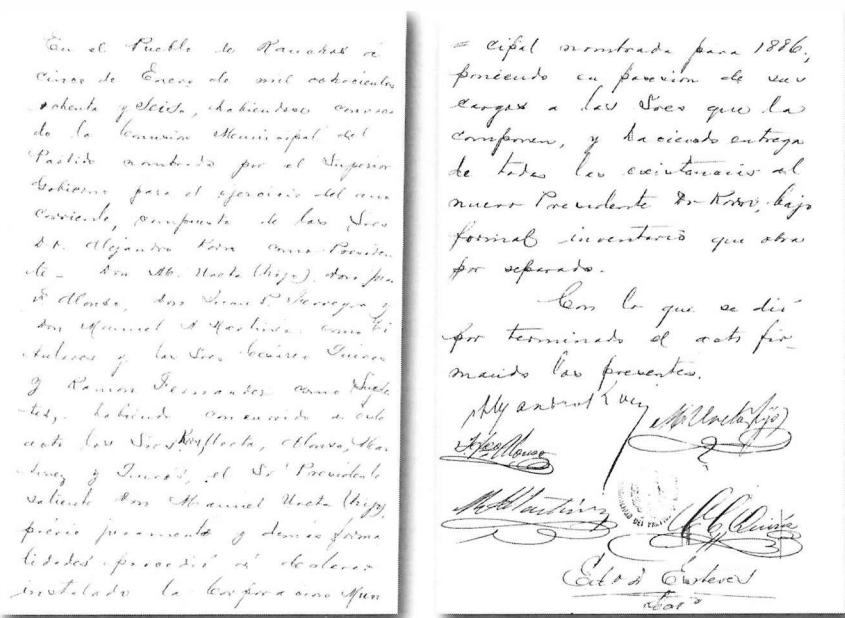 En el Pueblo de Ranchos á
cinco de Enero de mil ochocientos
ochenta y Seis, habiendose convoca
do la Comision Municipal del
Partido nombrado por el Superior
Gobierno para el ejercicio del año
corriente, compuesta de los Sres
Dr. Alejandro Korn como Presiden
te - Don M. Uzeta (hijo), don
Alonso, don Juan P. Ferreyra y
don Manuel A Martinez como Ti
tulares y los Sres Cesáreo Quiros
y Ramon Fernandez como Suplen
tes, habiendo concurrido á este
acto los Sres Korn, Uzeta, Alonso, Mar
tinez y Quirós, el Sr Presidente
saliente Don Manuel Uzeta (hijo),
prévio juramento y demás forma
lidades procedió á declarar
instalada la Corporacion Muni
= cipal nombrada para 1886,
poniendo en posesion de sus
cargos a los Sres que la
componen, y haciendo entrega
de todas las existencias al
nuevo Presidente Dr Korn, bajo
formal inventario que obra
por separado.
Con lo que se dió
por terminado el acto fir-
mando los presentes.
Alejandro Korn
M. Uzeta (hijo)
Alonso
M A Martinez
C Quirós
Edo S. Esteves
Sec°